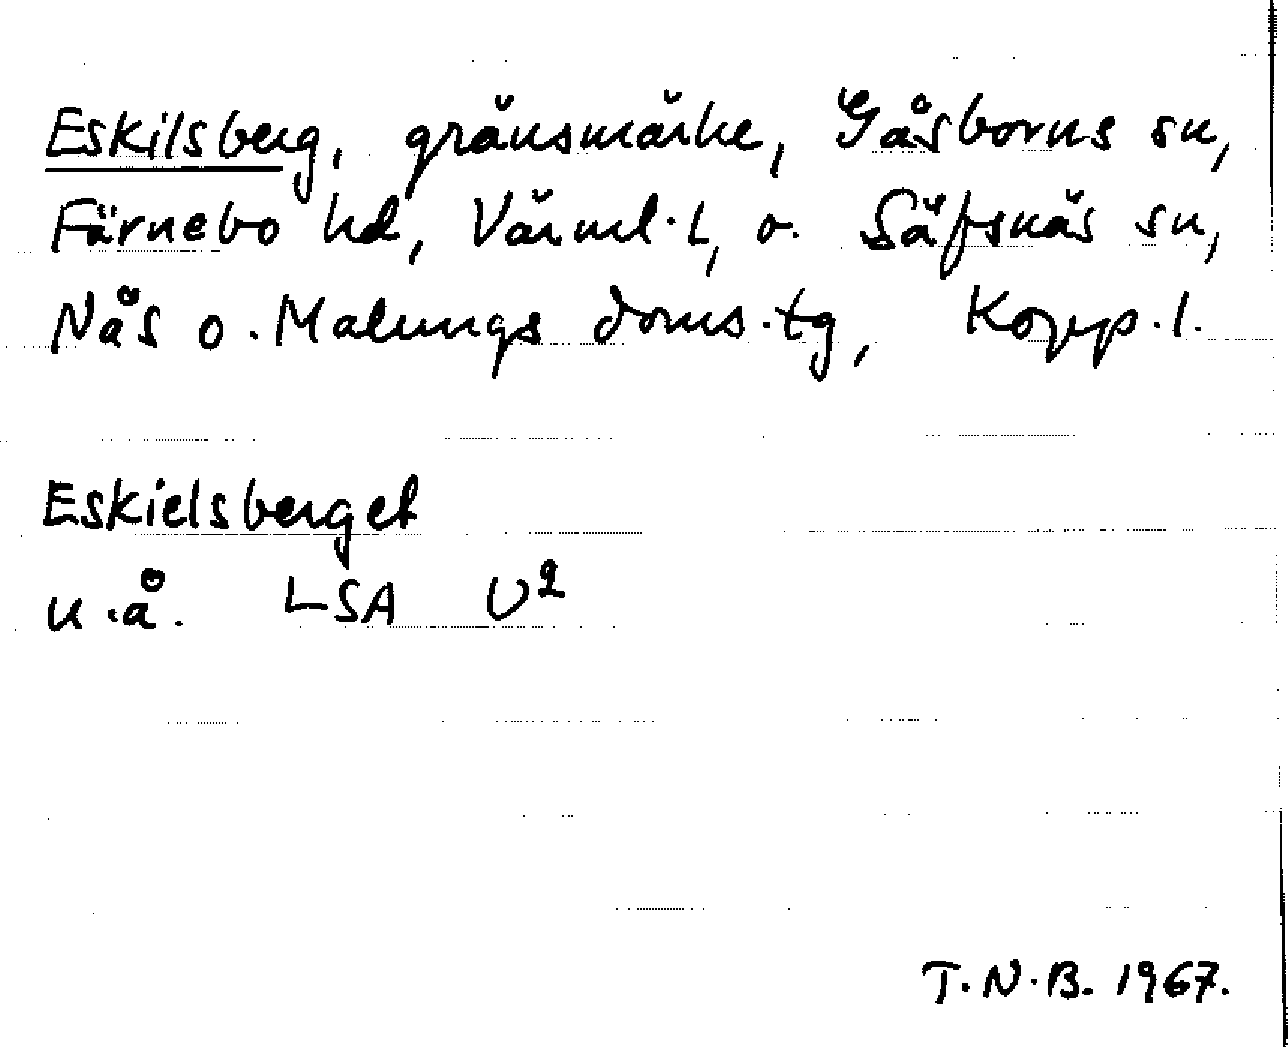 Eskilsberg, gränsmärke, Gåsborns sn,
Färnebo hd, Värml. l, o. Säfsnäs sn,
Nås o. Malungs doms.tg, Kopp. l.
Eskielsberget
u.å. LSA U²
T.N.B. 1967.